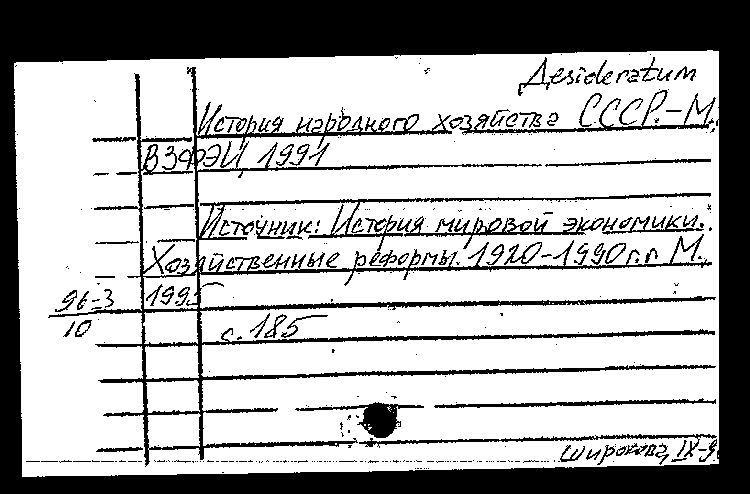 Desideratum
История народного хозяйства СССР.-М.,
ВЗФЭИ, 1991
Источник: История мировой экономики.
Хозяйственные реформы. 1920-1990 г.г. М.,
96-3 1995
10 с. 185
Широкова, IX-9